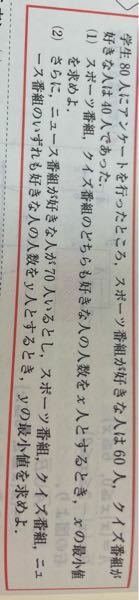 学生80人にアンケートを行ったところ，スポーツ番組が好きな人は60人，クイズ番組が
好きな人は40人であった。
(1) スポーツ番組，クイズ番組のどちらも好きな人の人数をx人とするとき，xの最小値
を求めよ。
(2) さらに，ニュース番組が好きな人が70人いるとし，スポーツ番組，クイズ番組，ニュ
ース番組のいずれも好きな人の人数をy人とするとき，yの最小値を求めよ。